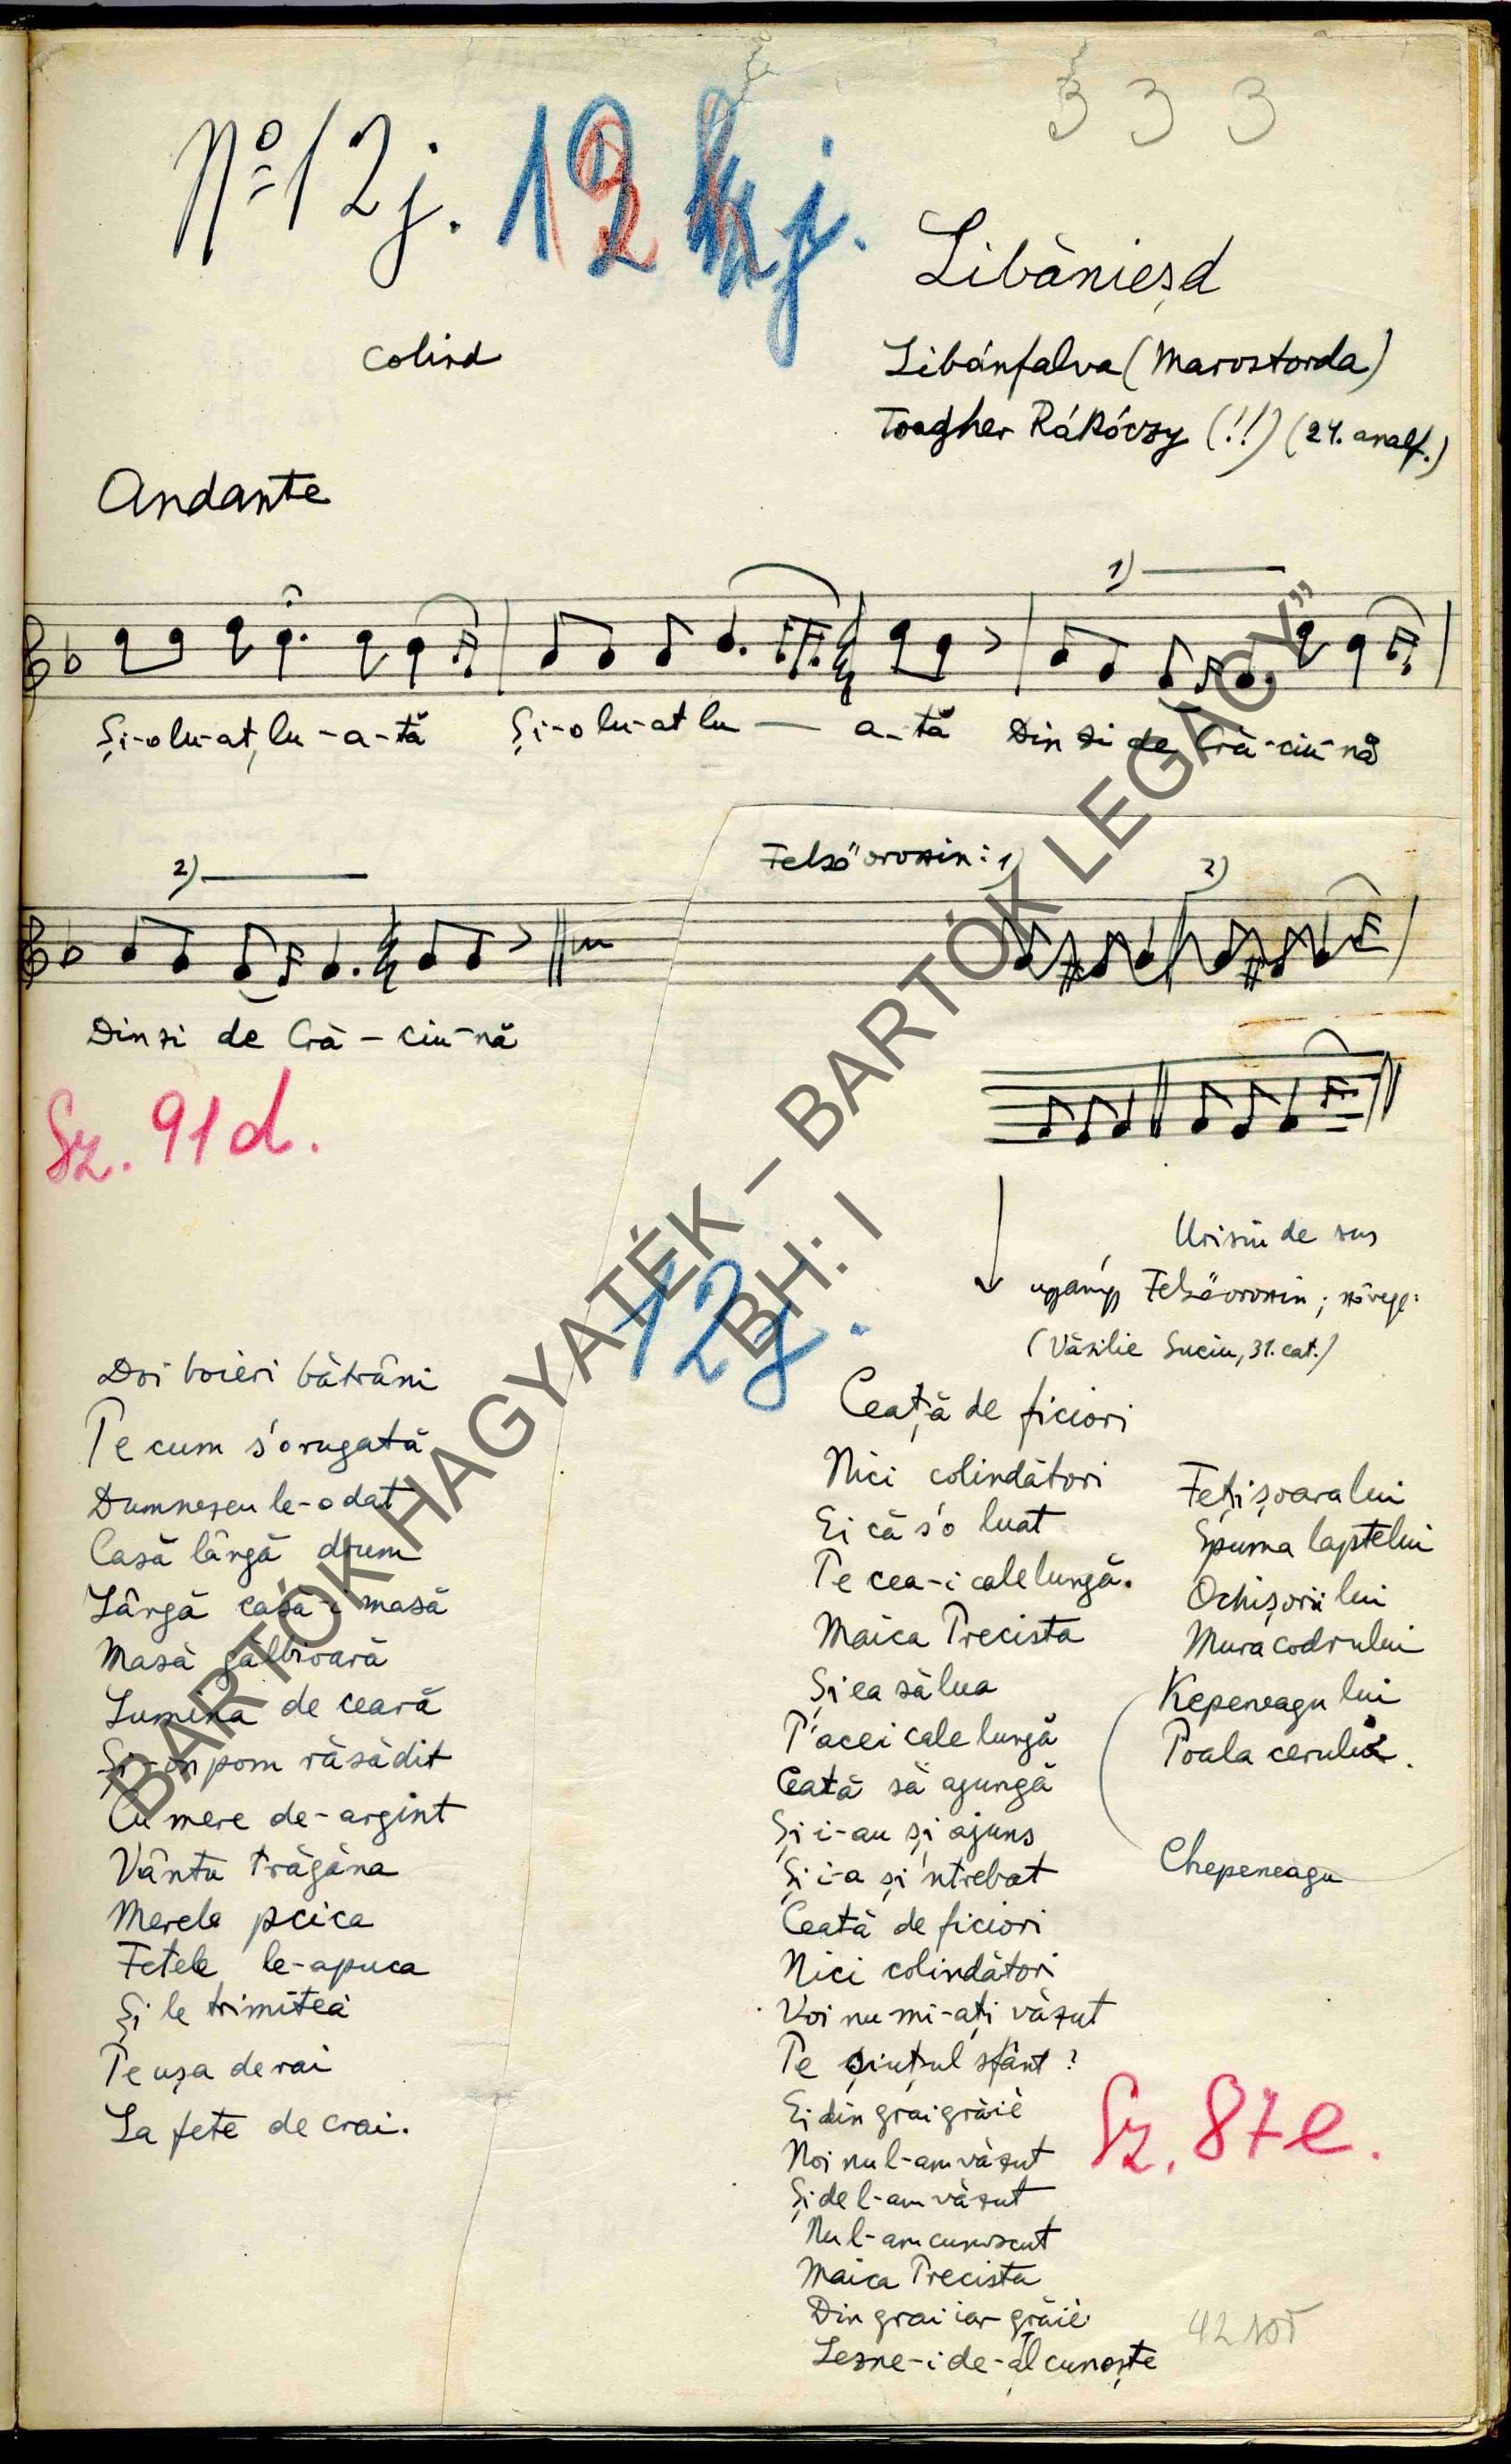 333
No 12j. 12 j.
Libăniesd
colind
Libánfalva (Marostorda)
Toagher Rákóczy (!!) (24. analf.)
Andante
1)
Și-o lu-at, lu-a-tă Și-o lu-at lu — a-tă Din zi de Cră-ciu-nă
2)
Felsőoroszin: 1) 2)
Din zi de Cră-ciu-nă
Sz. 91d.
Urisiu de sus
ugyanígy Felsőoroszin; szöveg:
(Văsilie Suciu, 31. cat.)
12j.
Doi boieri bătrâni
Pe cum s'o rugată
Dumnezeu le-o dat
Casă lângă drum
Lângă casă-i masă
Masă gălbioară
Lumină de ceară
Și-on pom răsădit
Cu mere de-argint
Vântu trăgăna
Merele pcica
Fetele le-apuca
Și le trimitea
Pe ușa de rai
La fete de crai.
Ceață de ficiori
Nici colindători
Ei că s'o luat
Pe cea-i cale lungă.
Maica Precista
Și ea să lua
P'acei cale lungă
Ceată să ajungă
Și i-au și ajuns
Și i-a și 'ntrebat
Ceată de ficiori
Nici colindători
Voi nu mi-ați văzut
Pe șiuțsul sfânt?
Ei din grai grăiè
Noi nu l-am văzut
Și de l-am văzut
Nu l-am cunoscut
Maica Precista
Din grai iar grăiè
Lesne-i de-al cunoște
Fețișoara lui
Spuma laptelui
Ochișorii lui
Mura codrului
Kepeneagu lui
Poala cerului.
Chepeneagu
Sz. 87e.
42 sor
BARTÓK HAGYATÉK – BARTÓK LEGACY”
BH: I